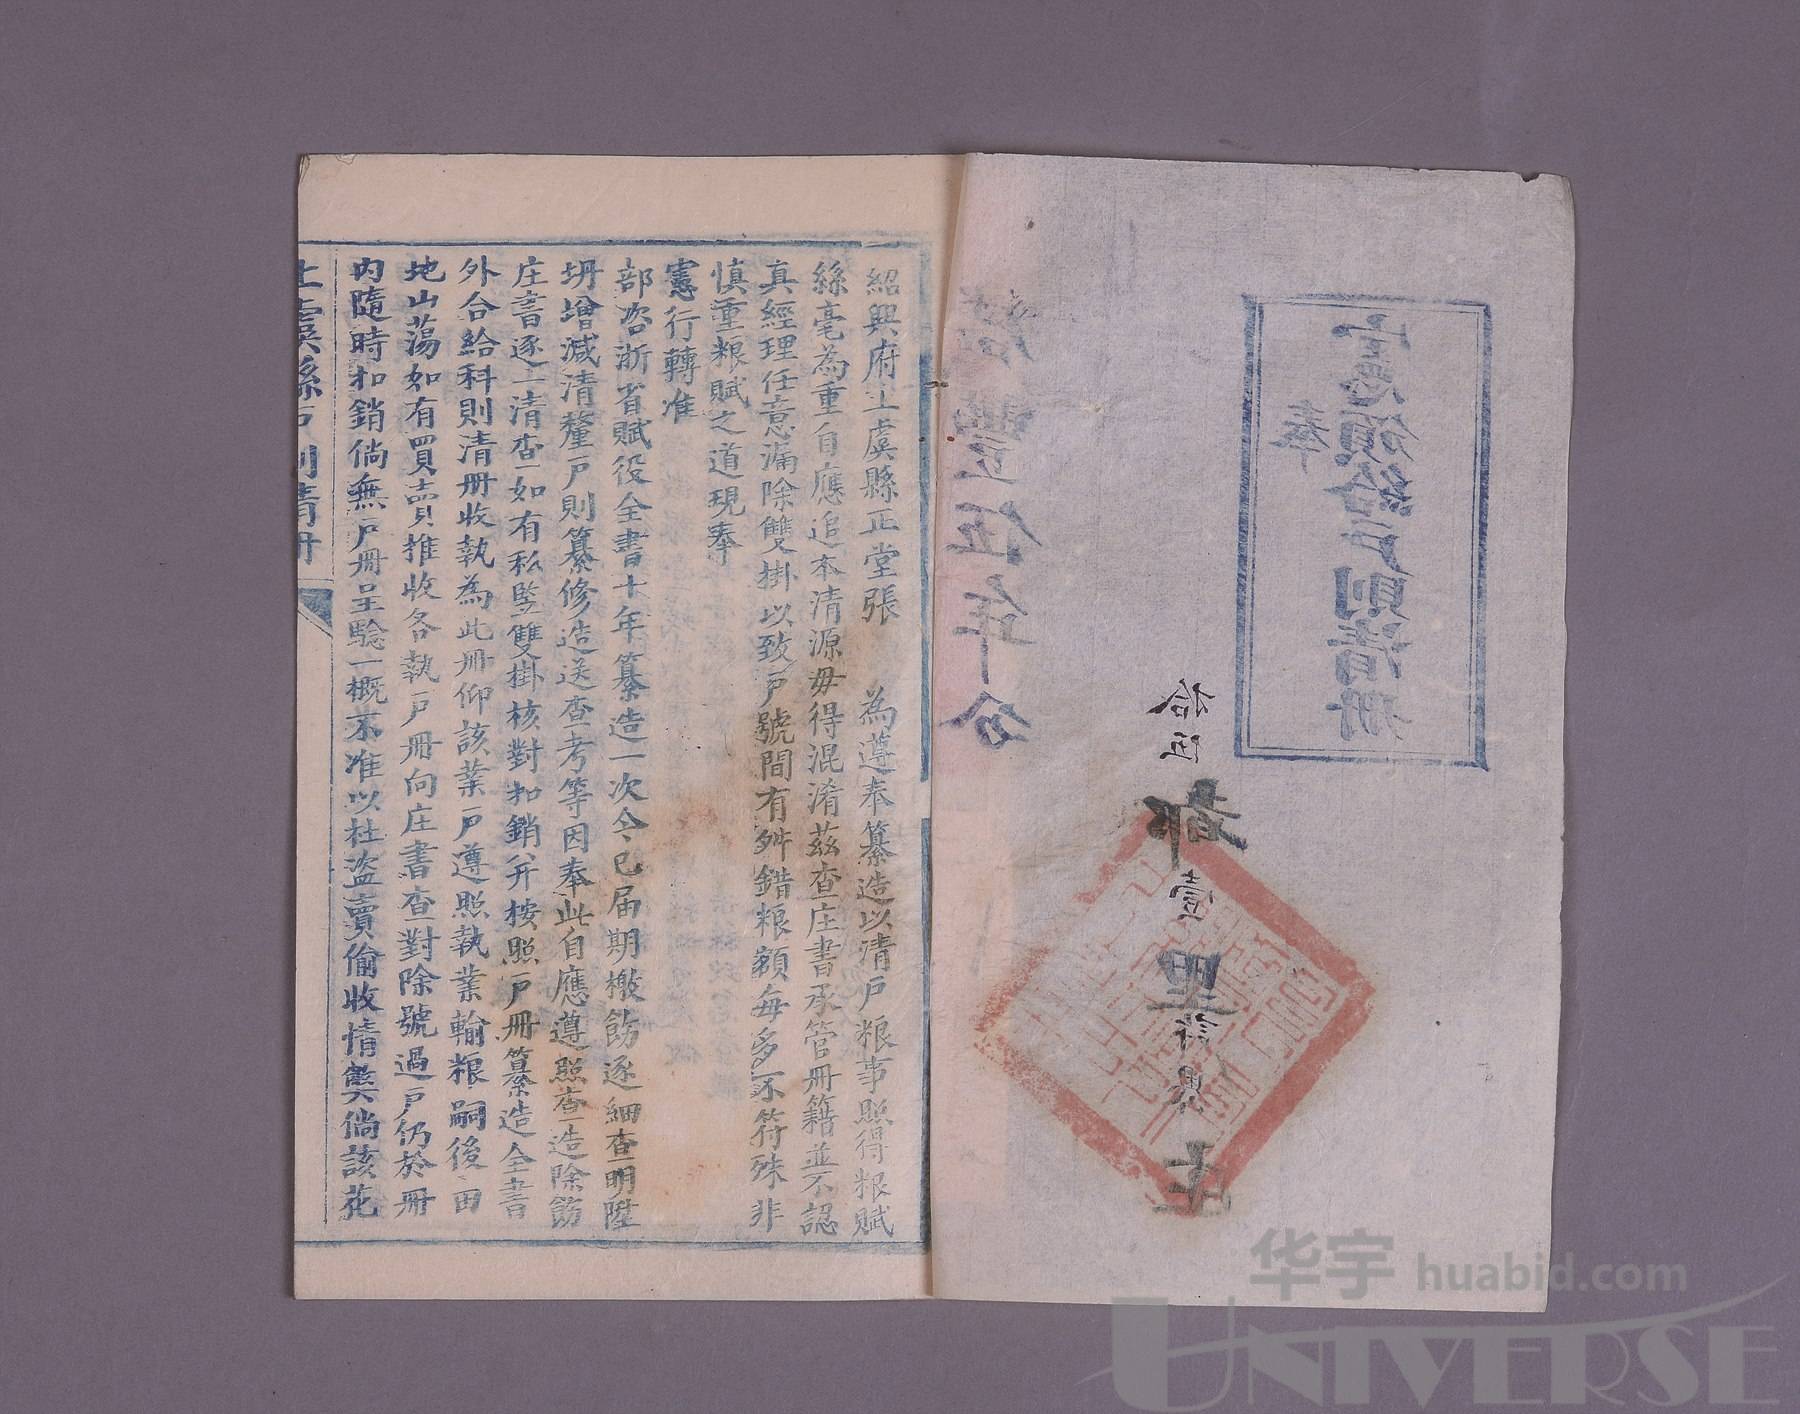 奉
憲頒給戶則清册
拾伍都壹里
庄
咸豐伍年分
紹興府上虞縣正堂張 為遵奉纂造以清戶粮事照得粮賦
絲毫為重自應追本清源毋得混淆茲查庄書承管册籍並不認
真經理任意漏除雙掛以致戶號間有舛錯粮額每多不符殊非
慎重粮賦之道現奉
憲行轉准
部咨浙省賦役全書十年纂造一次今已届期檄飭逐細查明陞
坍增減清釐戶則纂修造送查考等因奉此自應遵照查造除飭
庄書逐一清查如有私墅雙掛核對扣銷并按照戶册纂造全書
外合給科則清册收執為此册仰該業戶遵照執業輸粮嗣後田
地山蕩如有買賣推收各執戶册向庄書查對除號過戶仍於册
内隨時扣銷倘無戶册呈驗一概不准以杜盜賣偷收情獘倘該花
上虞縣戶則清册
华宇 huabid.com
UNIVERSE